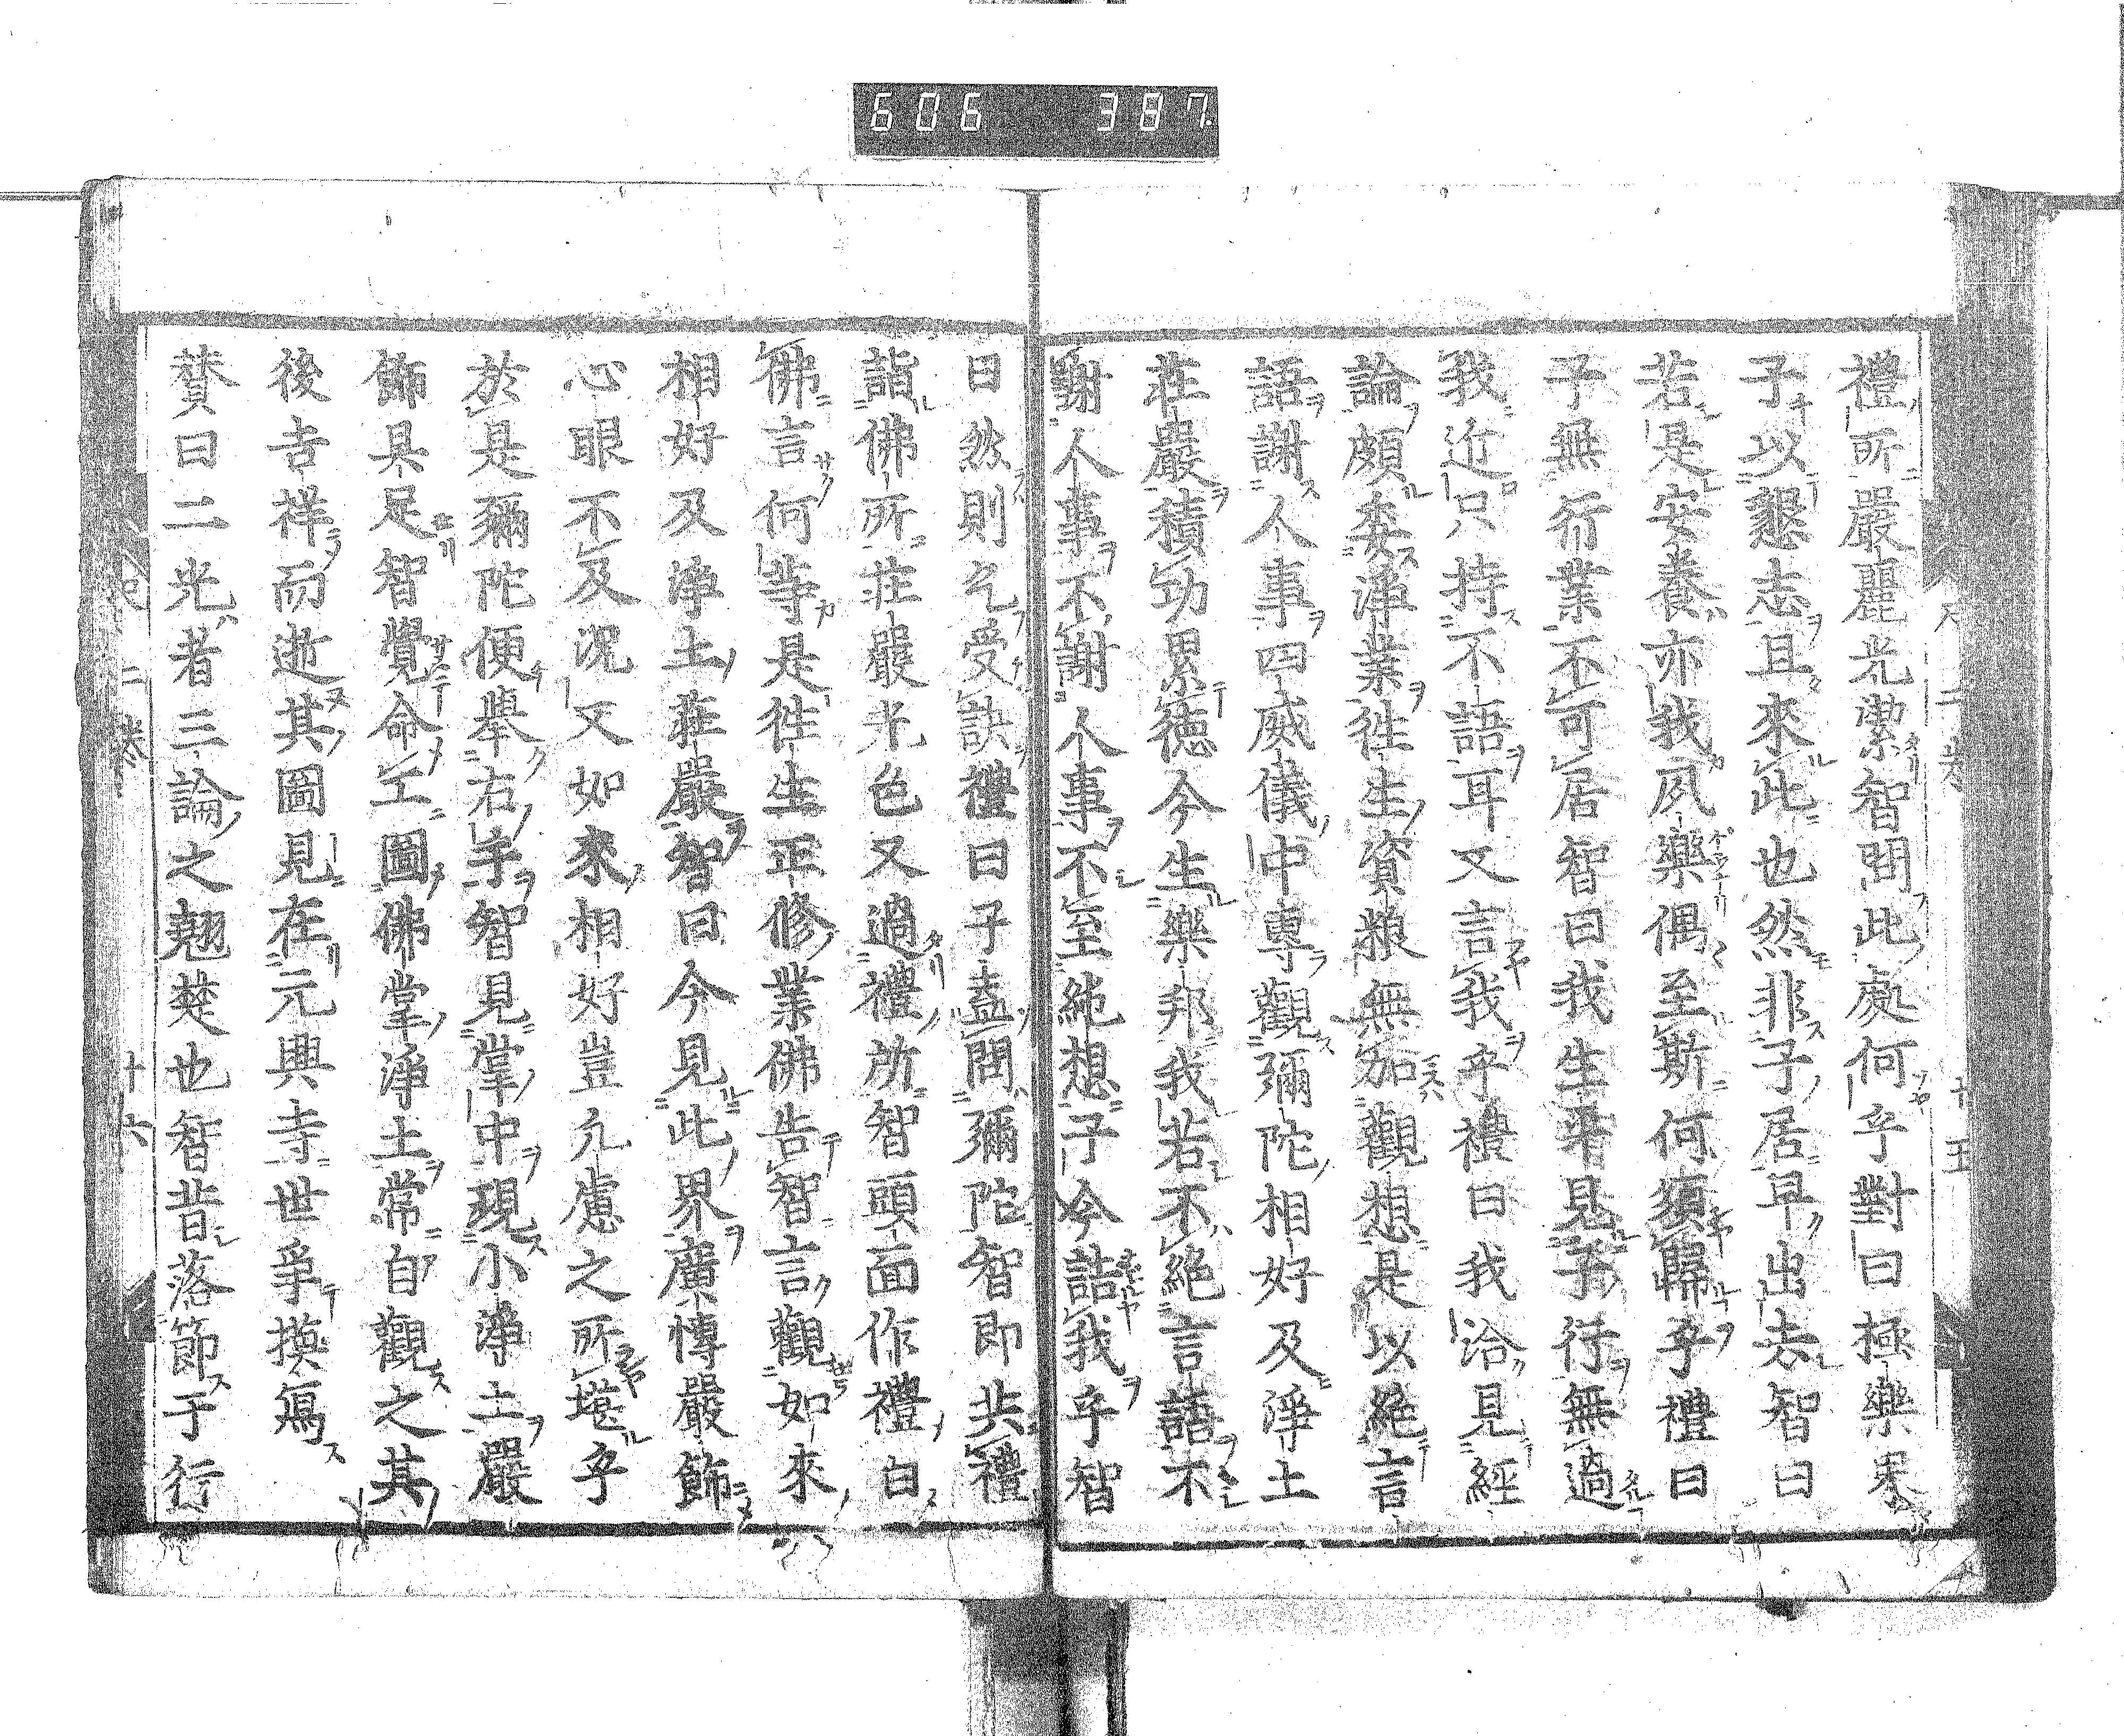 606 387
禮所嚴麗光潔智問此處何乎對曰極樂果
子以懇志且來此也然非子居早出去智曰
若是安養亦我夙樂偶至斯何須歸乎禮曰
子無行業不可居智曰我生平見子行無過
我近只持不語耳又言我乎禮曰我洽見經
論頗委淨業徃生資粮無如觀想是以絕言
語謝人事四威儀中專觀彌陀相好及淨土
莊嚴積功累德今生樂邦我若不絕言語不
謝人事不謝人事不至純想子今詰我乎智
曰然則乞受訣禮曰子盍問彌陀智即共禮
詣佛所莊嚴光色又過禮所智頭面作禮白
佛言何等是徃生正修業佛告智言觀如來
相好及淨土莊嚴智曰今見此界廣博嚴飾
心眼不及況又如來相好豈凢慮之所堪乎
於是彌陀便舉右手智見掌中現小淨土嚴
飾具足智覺命工圖佛掌淨土常自觀之其
後吉祥而逝其圖見在元興寺世爭摸寫
賛曰二光者三論之翹楚也智昔落節于行
二卷 十六